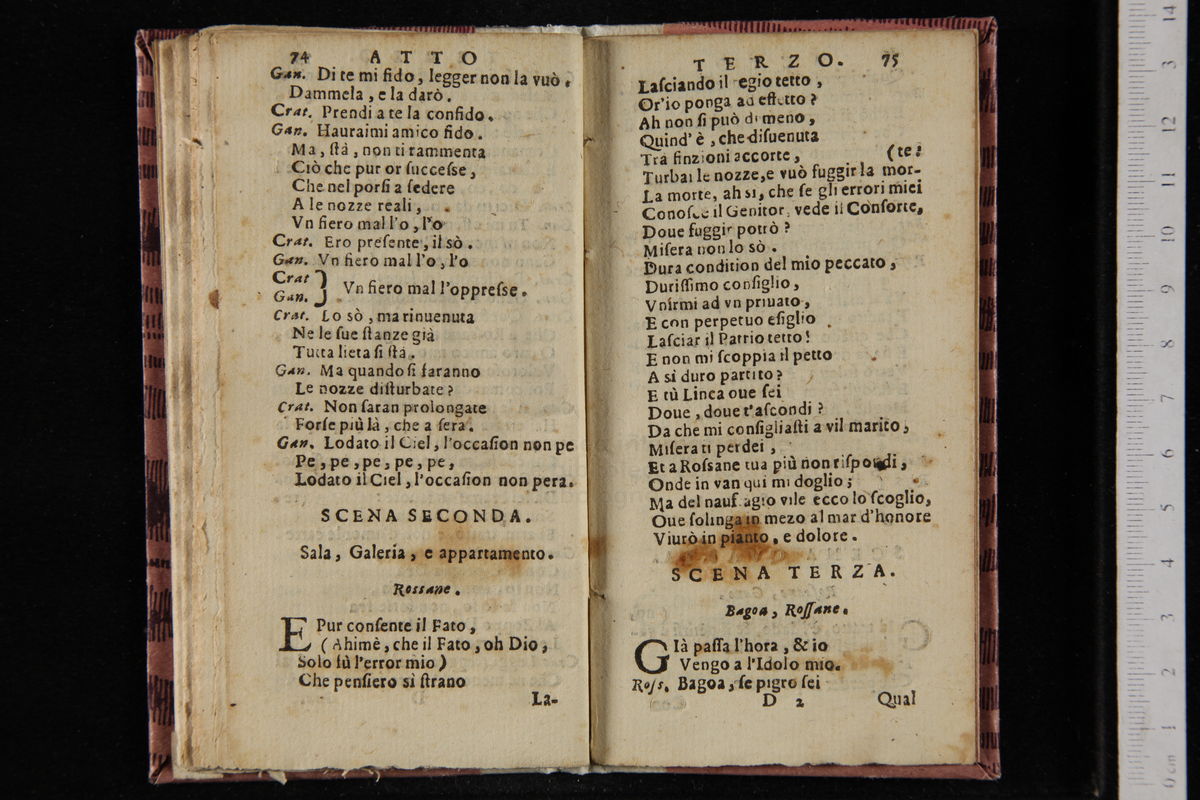 74 ATTO
Gan. Di te mi fido, legger non la vuò.
Dammela, e la darò.
Crat. Prendi a te la confido.
Gan. Hauraimi amico fido.
Ma, ſtà, non ti rammenta
Ciò che pur or ſucceſse,
Che nel porſi a ſedere
A le nozze reali,
Vn fiero mal l'o, l'o
Crat. Ero preſente, il sò.
Gan. Vn fiero mal l'o, l'o
Crat
Gan. } Vn fiero mal l'oppreſse.
Crat. Lo sò, ma rinuenuta
Ne le ſue ſtanze già
Tutta lieta ſi ſtà.
Gan. Ma quando ſi faranno
Le nozze diſturbate?
Crat. Non ſaran prolongate
Forſe più là, che a ſera.
Gan. Lodato il Ciel, l'occaſion non pe
Pe, pe, pe, pe, pe,
Lodato il Ciel, l'occaſion non pera.
SCENA SECONDA.
Sala, Galeria, e appartamento.
Rossane.
E Pur conſente il Fato,
( Ahimè, che il Fato, oh Dio,
Solo fù l'error mio )
Che penſiero sì ſtrano
La-
TERZO. 75
Laſciando il regio tetto,
Or'io ponga ad effetto?
Ah non ſi può di meno,
Quind' è, che diſuenuta
Trà finzioni accorte, (te:
Turbai le nozze, e vuò fuggir la mor-
La morte, ah sì, che ſe gli errori miei
Conoſce il Genitor, vede il Conſorte,
Doue fuggir potrò?
Miſera non lo sò.
Dura condition del mio peccato,
Duriſſimo conſiglio,
Vnirmi ad vn priuato,
E con perpetuo eſiglio
Laſciar il Patrio tetto!
E non mi ſcoppia il petto
A sì duro partito?
E tù Linca oue ſei
Doue, doue t'aſcondi?
Da che mi conſigliaſti a vil marito,
Miſera ti perdei,
Et a Roſsane tua più non riſpondi,
Onde in van qui mi doglio;
Ma del naufragio vile ecco lo ſcoglio,
Oue ſolinga in mezo al mar d'honore
Viurò in pianto, e dolore.
SCENA TERZA.
Bagoa, Roſſane.
GIà paſſa l'hora, & io
Vengo a l'Idolo mio.
Roſs. Bagoa, ſe pigro ſei
D 2 Qual